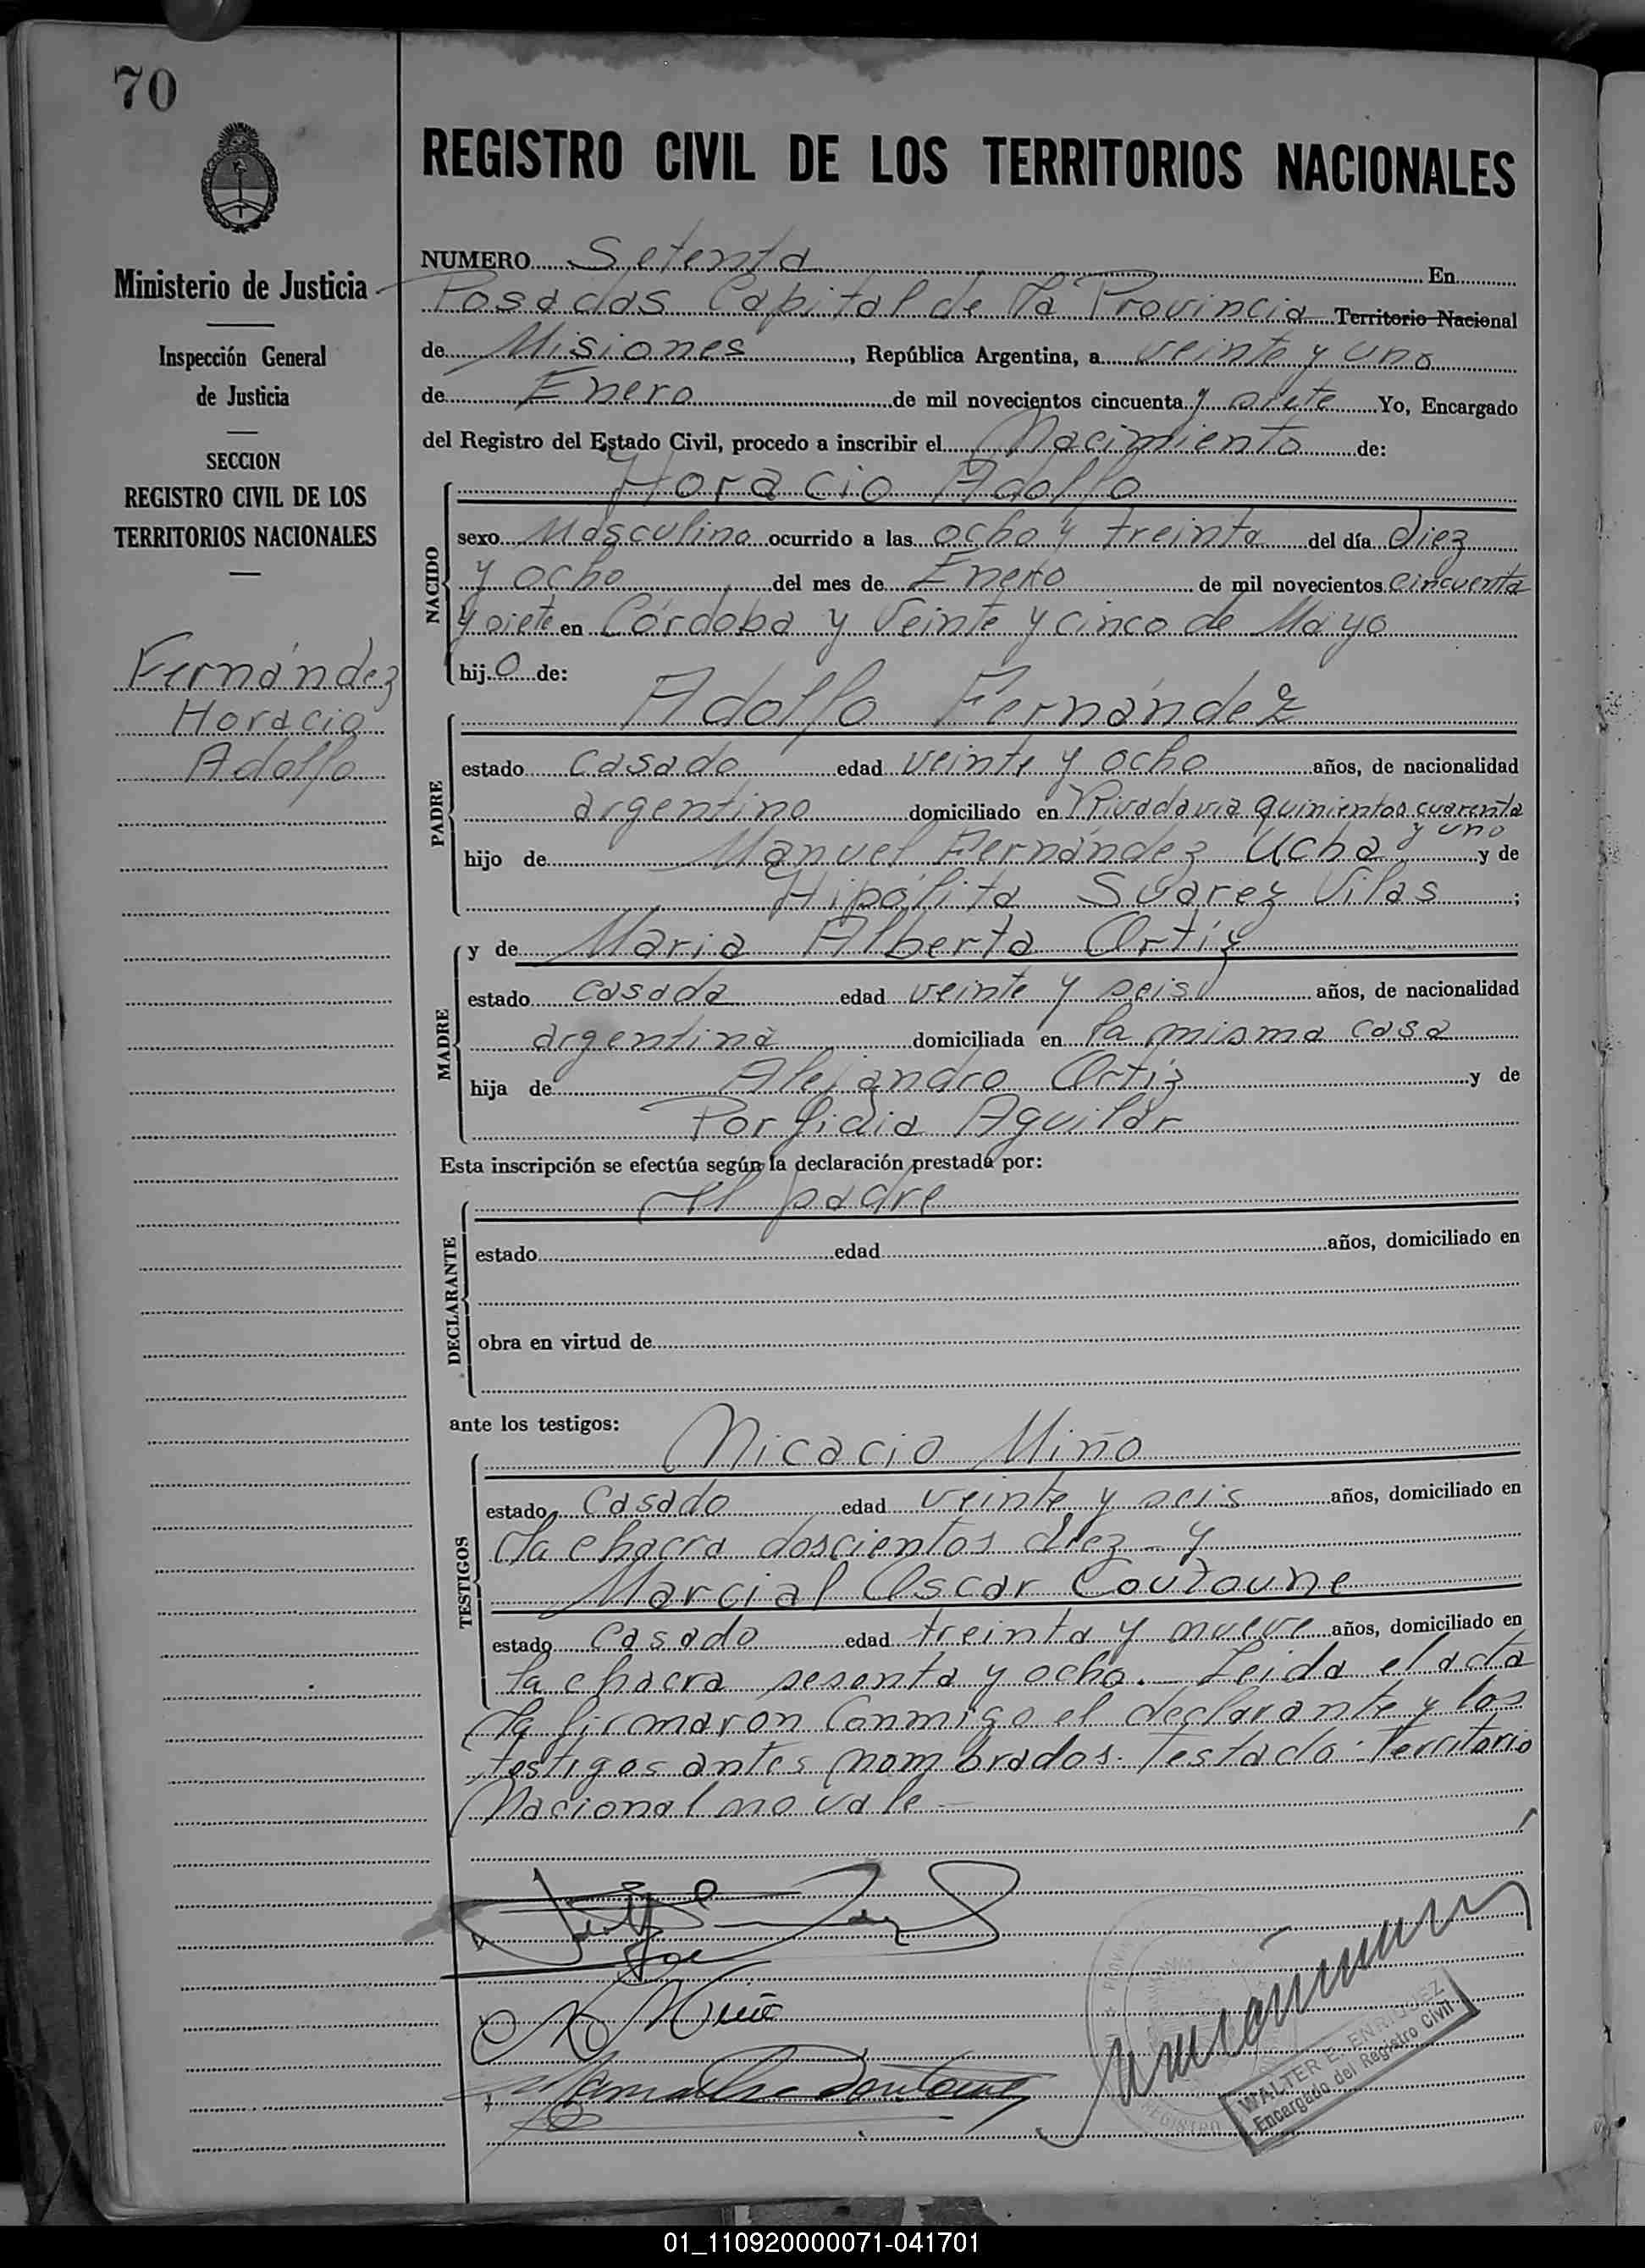 70
REGISTRO CIVIL DE LOS TERRITORIOS NACIONALES
Ministerio de Justicia
Inspección General
de Justicia
SECCION
REGISTRO CIVIL DE LOS
TERRITORIOS NACIONALES
Fernández
Horacio
Adolfo
NUMERO Setenta En
Posadas Capital de la Provincia Territorio Nacional
de Misiones, República Argentina, a veinte y uno
de Enero de mil novecientos cincuenta y siete Yo, Encargado
del Registro del Estado Civil, procedo a inscribir el Nacimiento de:
NACIDO
Horacio Adolfo
sexo Masculino ocurrido a las ocho y treinta del día diez
y ocho del mes de Enero de mil novecientos cincuenta
y siete en Córdoba y Veinte y cinco de Mayo
hijo de:
PADRE
Adolfo Fernández
estado casado edad veinte y ocho años, de nacionalidad
argentino domiciliado en Rivadavia quinientos cuarenta
y uno
hijo de Manuel Fernández Ucha y de
Hipólita Suarez Vilas;
MADRE
y de Maria Alberta Ortíz
estado casada edad veinte y seis años, de nacionalidad
argentina domiciliada en la misma casa
hija de Alejandro Ortíz y de
Porfidia Aguilar
Esta inscripción se efectúa según la declaración prestada por:
DECLARANTE
El padre
estado edad años, domiciliado en
obra en virtud de
ante los testigos:
TESTIGOS
Nicacio Miño
estado casado edad veinte y seis años, domiciliado en
la chacra doscientos diez y
Marcial Oscar Coutoune
estado casado edad treinta y nueve años, domiciliado en
la chacra sesenta y ocho. Leida el acta
la firmaron conmigo el declarante y los
testigos antes nombrados. Testado: Territorio
Nacional no vale
N Miño
WALTER E. ENRIQUEZ
Encargado del Registro Civil
REGISTRO
01_110920000071-041701